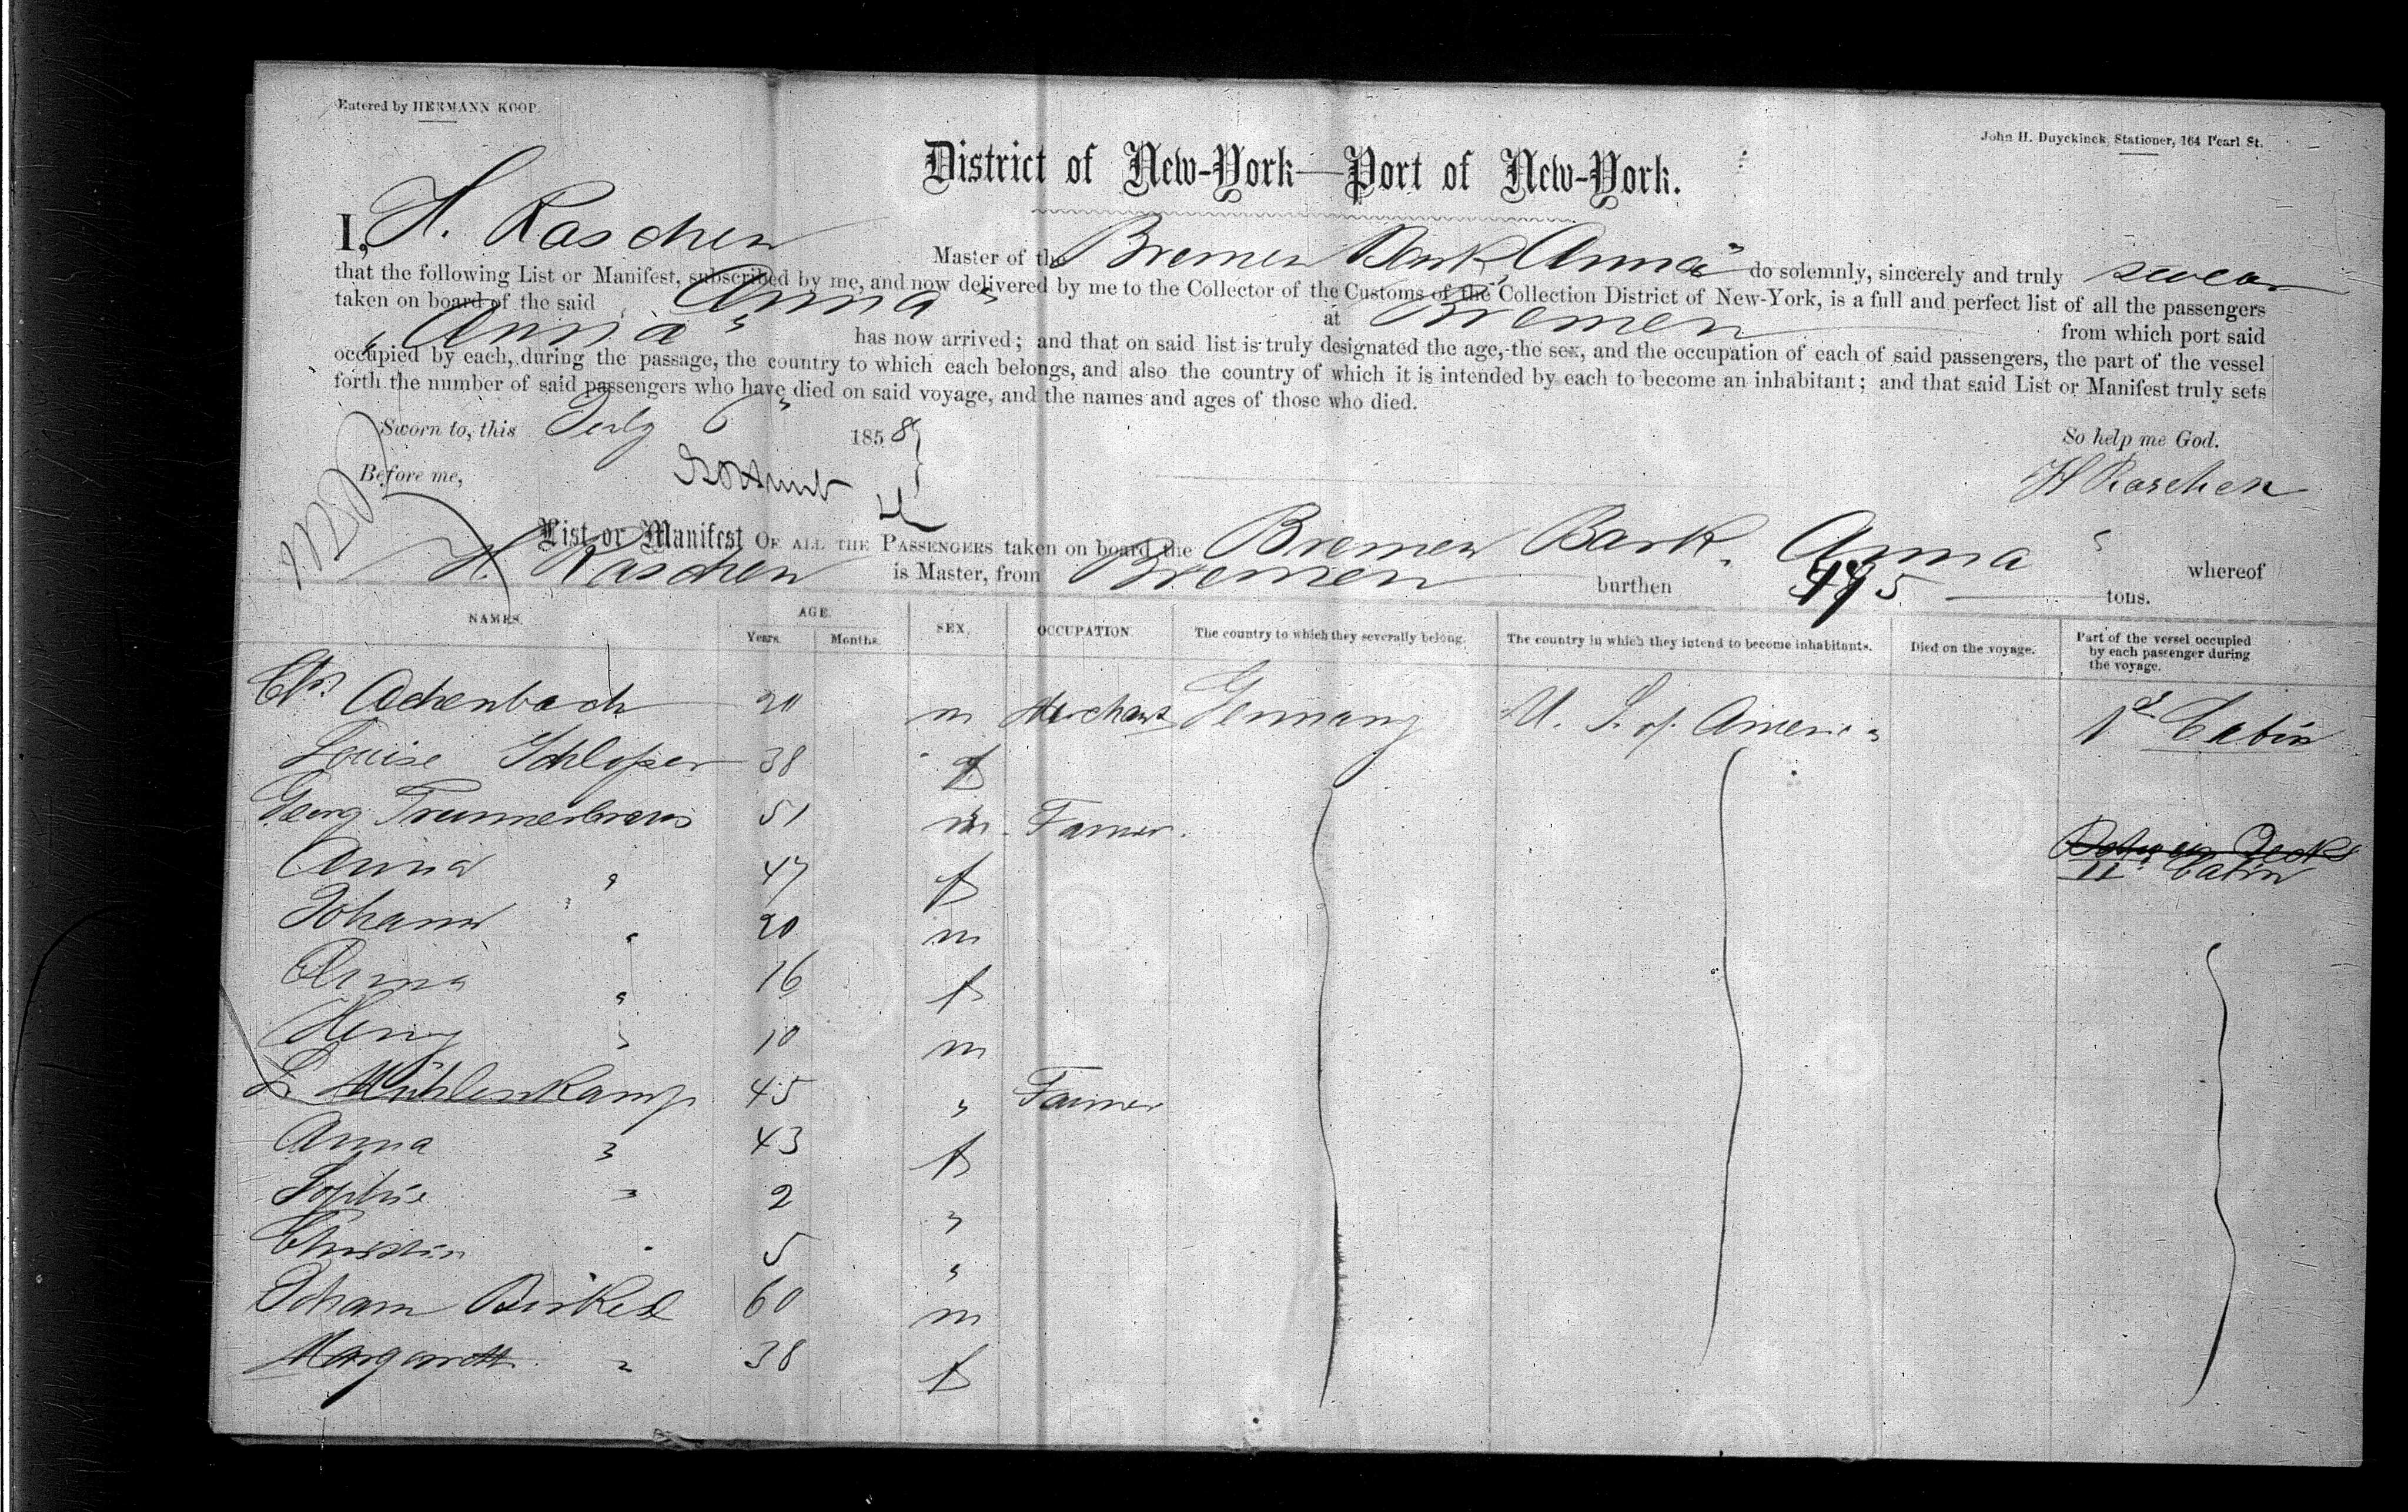 Entered by HERMANN KOOP.
John H. Duyckinck, Stationer, 164 Pearl St.
District of New-York—Port of New-York.
I, H. Raschen Master of the Bremen Bark „Anna" do solemnly, sincerely and truly swear
that the following List or Manifest, subscribed by me, and now delivered by me to the Collector of the Customs of the Collection District of New-York, is a full and perfect list of all the passengers
taken on board of the said „Anna" at Bremen from which port said
„Anna" has now arrived; and that on said list is truly designated the age, the sex, and the occupation of each of said passengers, the part of the vessel
occupied by each, during the passage, the country to which each belongs, and also the country of which it is intended by each to become an inhabitant; and that said List or Manifest truly sets
forth the number of said passengers who have died on said voyage, and the names and ages of those who died.
Sworn to, this July 6" 1858
So help me God.
Before me,
H Raschen
List or Manifest OF ALL THE PASSENGERS taken on board the Bremen Bark „Anna" whereof
H. Raschen is Master, from Bremen burthen tons.
NAMES. AGE. Years. Months. SEX. OCCUPATION. The country to which they severally belong. The country in which they intend to become inhabitants. Died on the voyage. Part of the vessel occupied by each passenger during the voyage.
Achenbach 20 m Merchant Germany U. S. of America 1st Cabin
Louise 38 f
Georg 51 m Farmer.
Between Decks
Anna " 47 f II Cabin
Johann " 20 m
Anna " 16 f
Henry " 10 m
L. Mühlenkamp 45 " Farmer
Anna " 43 f
Sophie " 2 "
Christin " 5 "
Johann Birkel 60 m
Margareth " 38 f